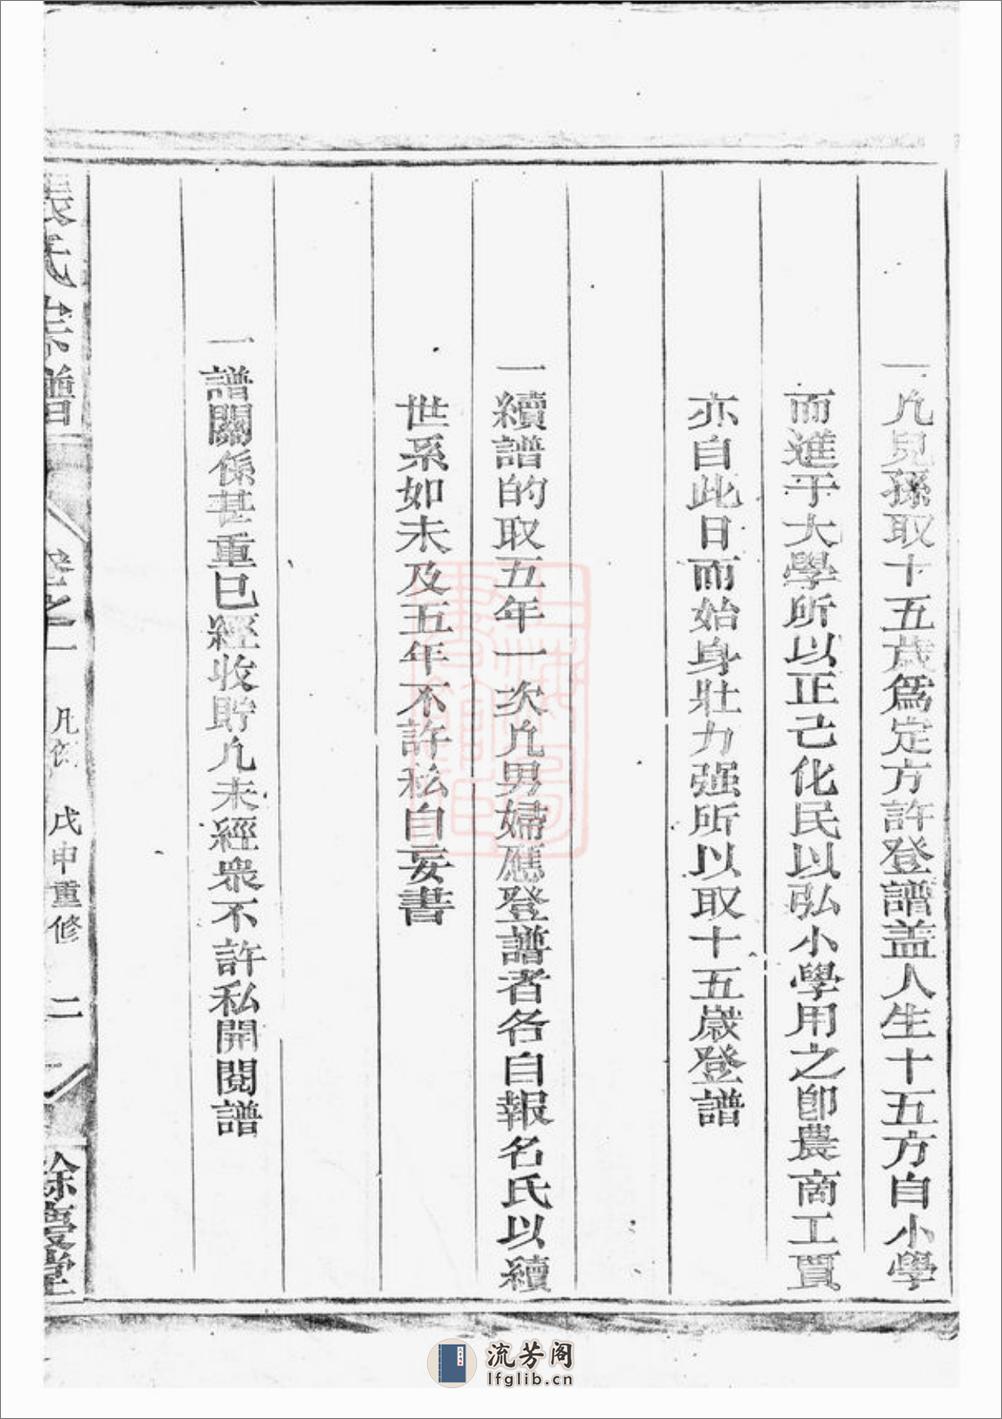 一凡兒孫取十五歲爲定方許登譜盖人生十五方自小學
而進于大學所以正己化民以弘小學用之卽農商工賈
亦自此日而始身壯力强所以取十五歲登譜
一續譜的取五年一次凡男婦應登譜者各自報名氏以續
世系如未及五年不許私自妄書
一譜關係甚重已經收貯凡未經衆不許私開閱譜
張氏宗譜
卷之一
凡例
戊申重修
二
餘慶堂
流芳阁
lfglib.cn